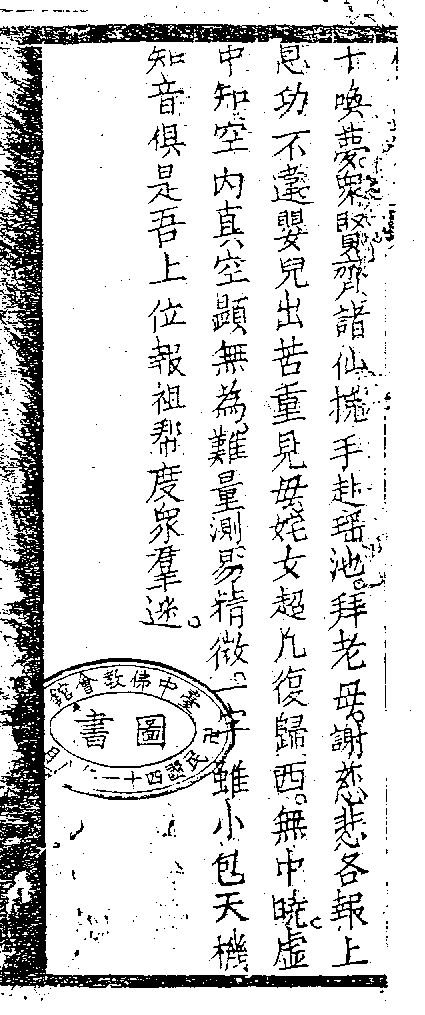 十喚夢衆賢齊諸仙携手赴瑶池。拜老毋謝慈悲各報上
息功不違嬰兒出苦重見毋姹女超凡復歸西。無中曉。虛
中知空内真空顯無為。難量測易精微。一字雖小包天機
知音俱是吾上位報祖帮度衆羣迷。
臺中佛教會館
圖書
民國四十一